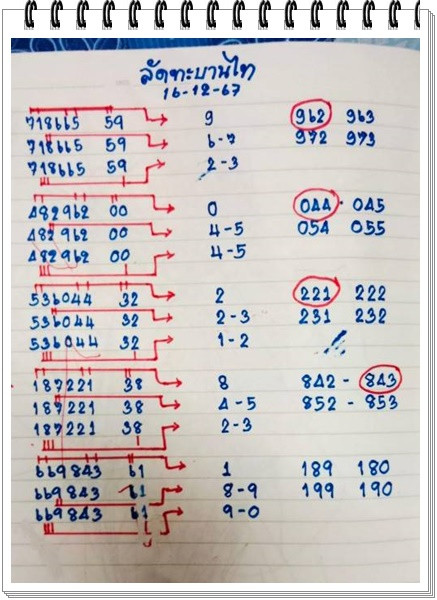 ลัดทะบานไท
16-12-67
718665 59 9 962 963
718665 59 6-7 972 973
718665 59 2-3
482962 00 0 044 045
482962 00 4-5 054 055
482962 00 4-5
536044 32 2 221 222
536044 32 2-3 231 232
536044 32 1-2
187221 38 8 842 - 843
187221 38 4-5 852 - 853
187221 38 2-3
669843 61 1 189 180
669843 61 8-9 199 190
669843 61 9-0